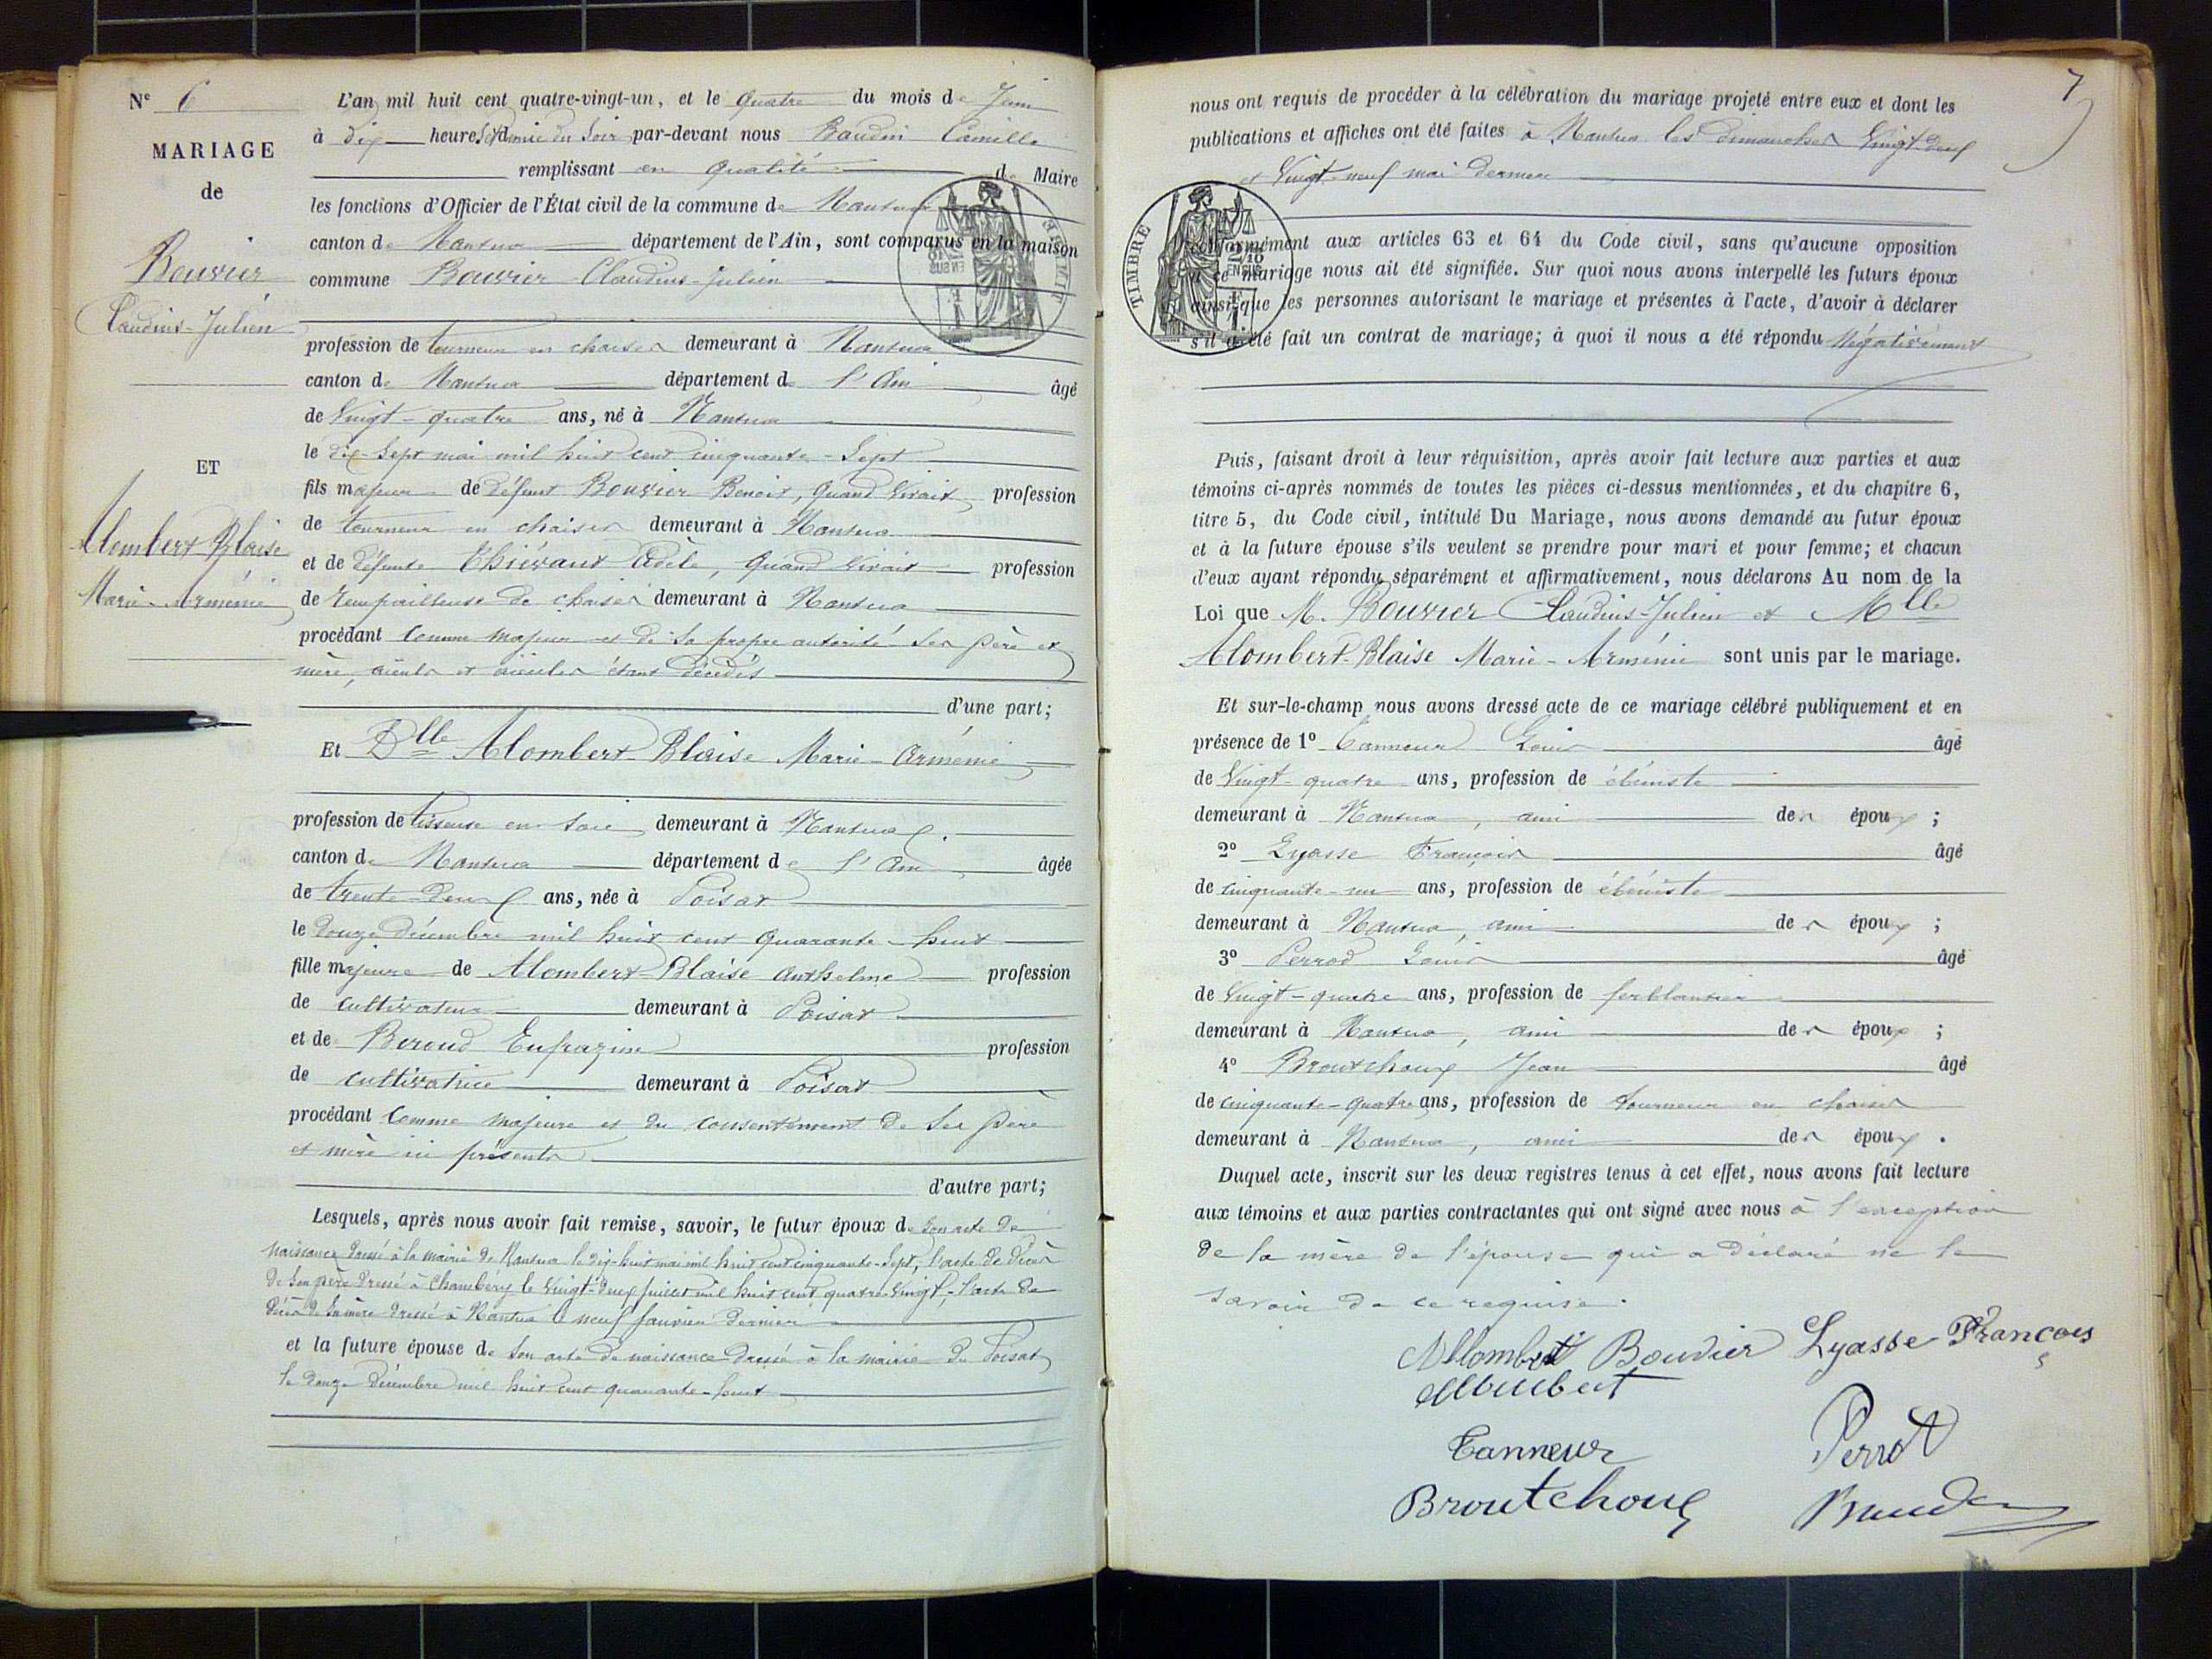 Nº 6
MARIAGE
de
Bouvier
Claudius-Julien
ET
Alombert Blaise
Marie-Arménie
L'an mil huit cent quatre-vingt-un, et le quatre du mois de Juin
à dix heures et demie du Soir par-devant nous Baudin Camille
remplissant en qualité de Maire
les fonctions d'Officier de l'État civil de la commune de Nantua
canton de Nantua département de l'Ain, sont comparus en la maison
commune Bouvier Claudius-Julien
profession de tourneur en chaises demeurant à Nantua
canton de Nantua département de l'Ain âgé
de Vingt-quatre ans, né à Nantua
le dix-Sept mai mil huit cent cinquante-Sept
fils majeur de défunt Bouvier Benoit, quand Vivait profession
de tourneur en chaises demeurant à Nantua
et de défunte Thiévant Adèle, quand Vivait profession
de rempailleuse de chaises demeurant à Nantua
procédant comme majeur et de Sa propre autorité Ses père et
mère, aïeuls et aïeules étant décédés
d'une part;
Et Dlle Alombert-Blaise Marie-Arménie
profession de tisseuse en soie demeurant à Nantua
canton de Nantua département de l'Ain âgée
de trente-deux ans, née à Poisat
le douze décembre mil huit cent quarante-huit
fille majeure de Alombert-Blaise Anthelme profession
de cultivateur demeurant à Poisat
et de Beroud Eufrazine profession
de cultivatrice demeurant à Poisat
procédant comme majeure et du consentement de Ses père
et mère ici présents
d'autre part;
Lesquels, après nous avoir fait remise, savoir, le futur époux de Son acte de
naissance dressé à la mairie de Nantua le dix-huit mai mil huit cent cinquante-Sept, l'acte de décès
de Son père dressé à Chambéry le Vingt-deux juillet mil huit cent quatre-Vingt, l'acte de
décès de Sa mère dressé à Nantua le neuf janvier dernier
et la future épouse de Son acte de naissance dressé à la mairie de Poisat
le douze décembre mil huit cent quarante-huit
7
nous ont requis de procéder à la célébration du mariage projeté entre eux et dont les
publications et affiches ont été faites à Nantua les dimanches Vingt-deux
et Vingt-neuf mai dernier
TIMBRE
conformément aux articles 63 et 64 du Code civil, sans qu'aucune opposition
à ce mariage nous ait été signifiée. Sur quoi nous avons interpellé les futurs époux
ainsi que les personnes autorisant le mariage et présentes à l'acte, d'avoir à déclarer
s'il a été fait un contrat de mariage; à quoi il nous a été répondu Négativement
Puis, faisant droit à leur réquisition, après avoir fait lecture aux parties et aux
témoins ci-après nommés de toutes les pièces ci-dessus mentionnées, et du chapitre 6,
titre 5, du Code civil, intitulé Du Mariage, nous avons demandé au futur époux
et à la future épouse s'ils veulent se prendre pour mari et pour femme; et chacun
d'eux ayant répondu séparément et affirmativement, nous déclarons Au nom de la
Loi que M. Bouvier Claudius-Julien et Mlle
Alombert-Blaise Marie-Arménie sont unis par le mariage.
Et sur-le-champ nous avons dressé acte de ce mariage célébré publiquement et en
présence de 1º Tanneur Louis âgé
de Vingt-quatre ans, profession de ébéniste
demeurant à Nantua, ami des époux ;
2º Lyasse François âgé
de cinquante-un ans, profession de ébéniste
demeurant à Nantua, ami des époux ;
3º Perrod Louis âgé
de Vingt-quatre ans, profession de ferblantier
demeurant à Nantua, ami des époux ;
4º Broutchoux Jean âgé
de cinquante-quatre ans, profession de tourneur en chaises
demeurant à Nantua, ami des époux .
Duquel acte, inscrit sur les deux registres tenus à cet effet, nous avons fait lecture
aux témoins et aux parties contractantes qui ont signé avec nous à l'exception
de la mère de l'épouse qui a déclaré ne le
savoir de ce requise.
Allombert Bouvier Lyasse François
Tanneur Perrot
Broutchoux Baudin